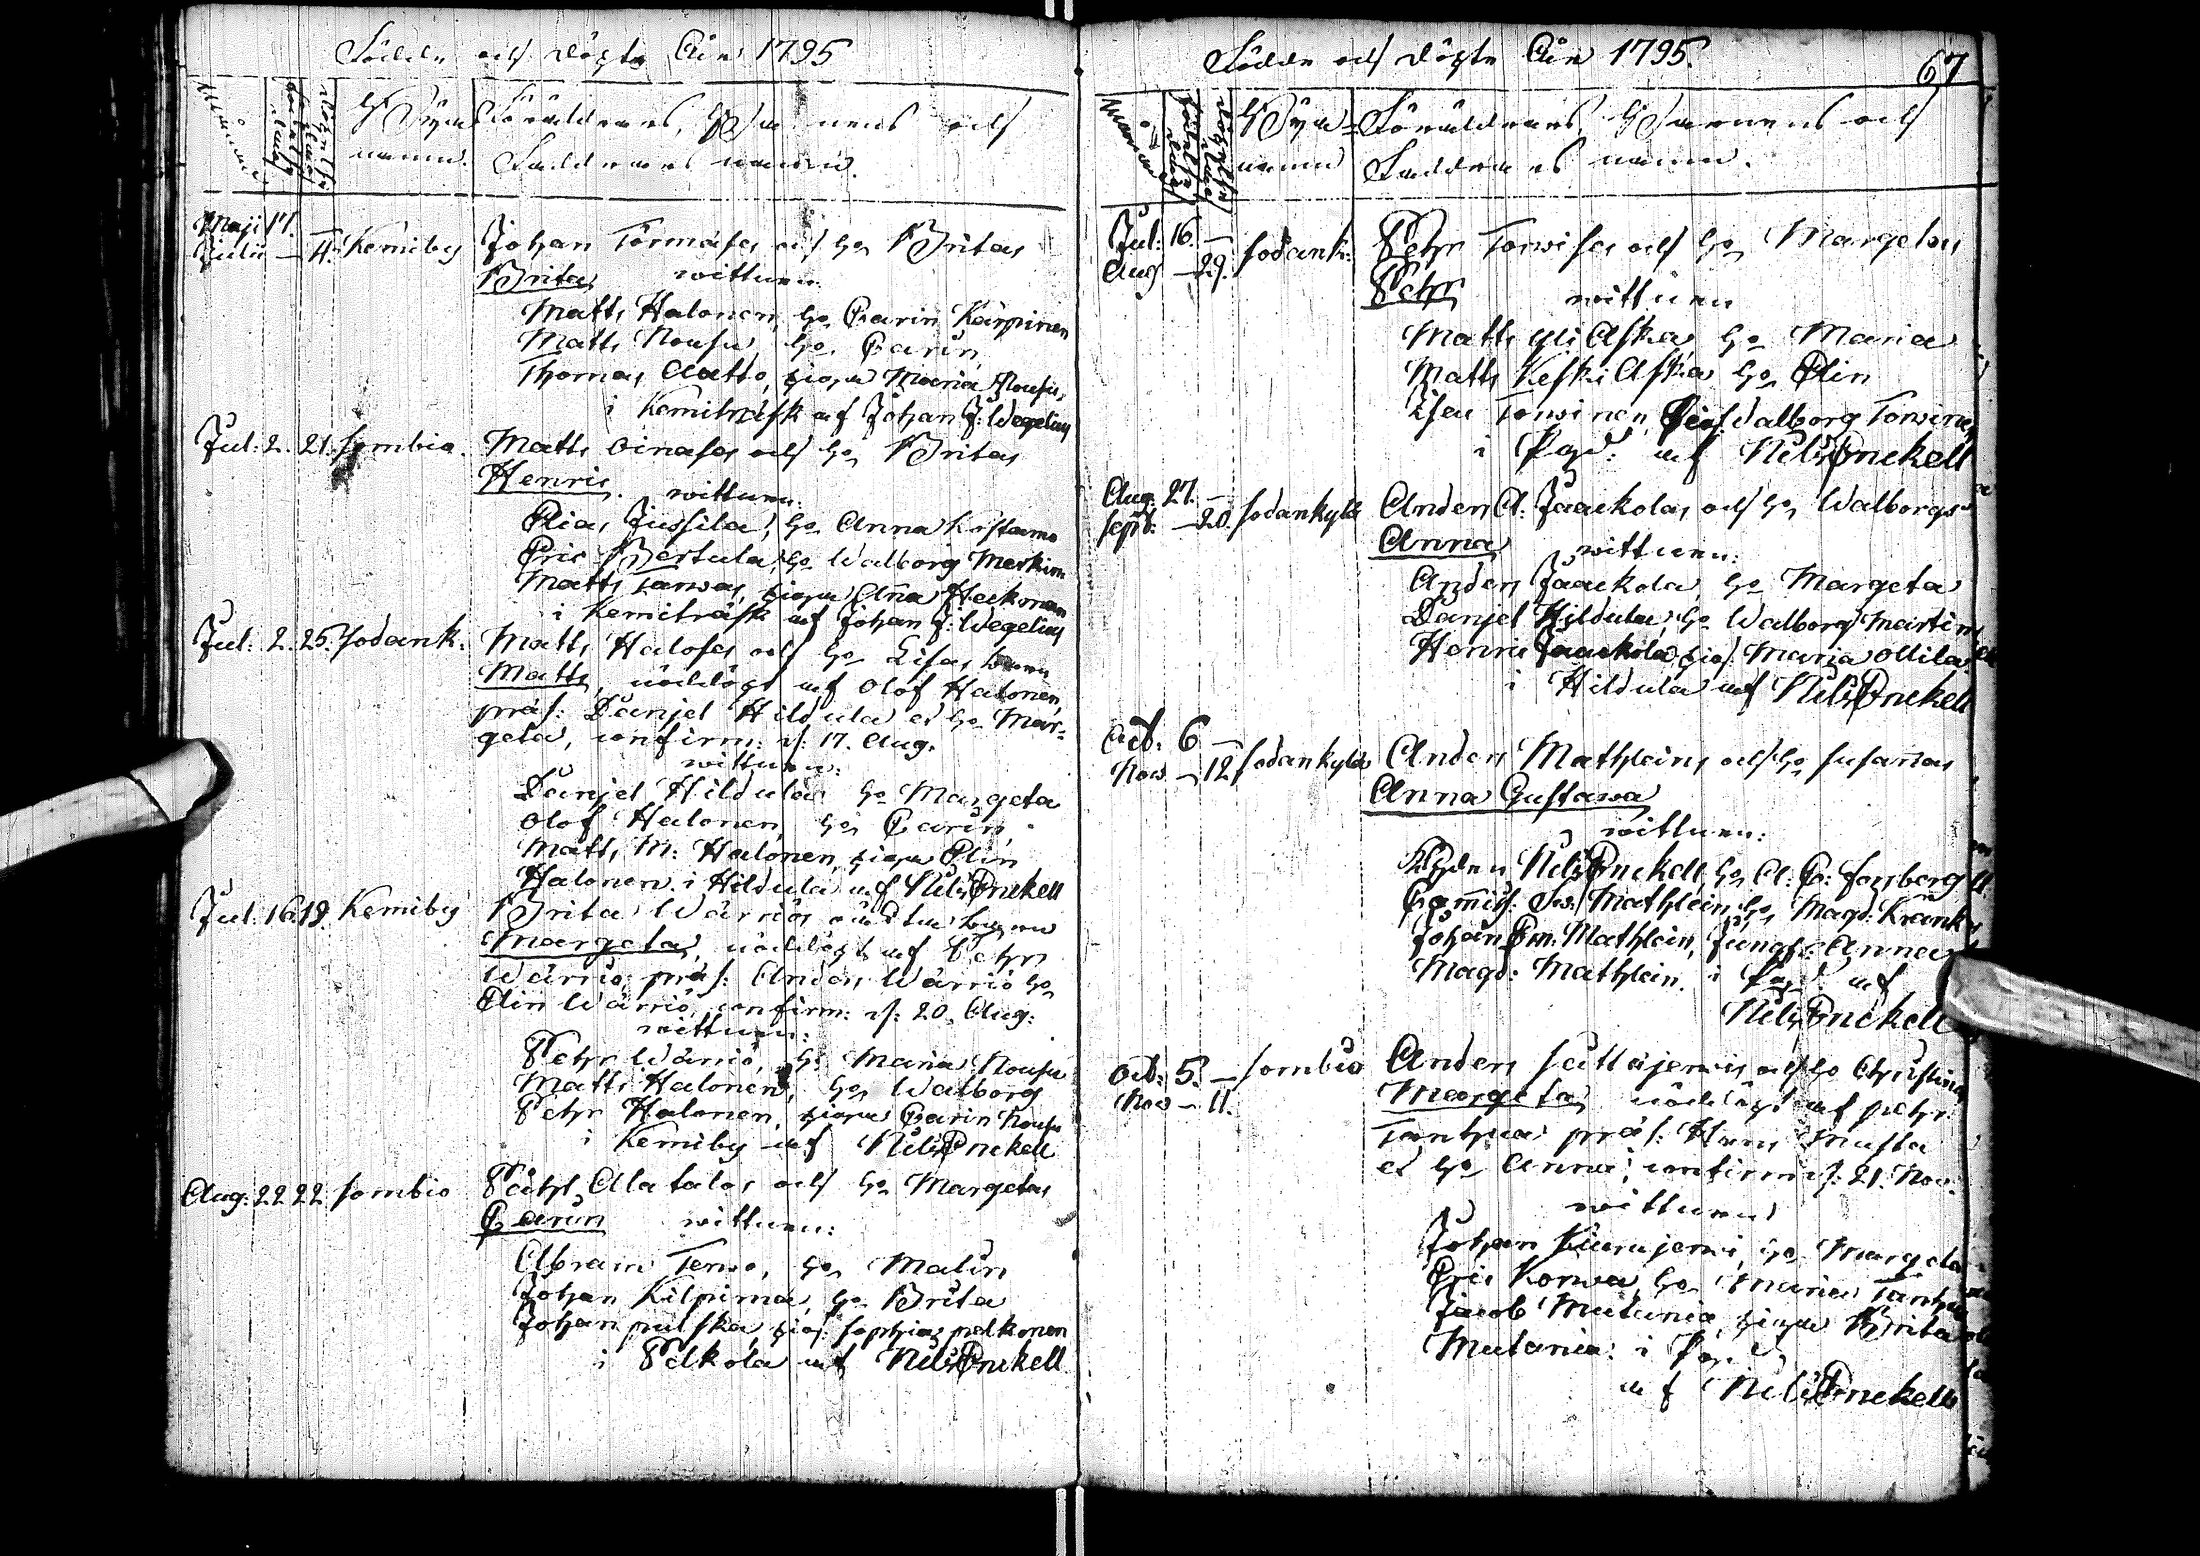 Födde och Döpte Åir 1795
Månan
Födelse dag
Döpelse dag
Byarnas namn.
Föräldrarnes, Barnens och
Faddrarnes namn.
Maji 17.
Julii — 4. Kemiby Johan Törmäses och ho Britas
Brita wittnen:
Matts Halonen, ho Carin Karpinen
Matts Nousu, ho Carin,
Thomas Aatto, piga Maria Nousu,
i Kemiträsk af Johan J: Wegelius
Jul: 2. 21. Sombio. Matts Oinases och ho Britas
Henric. wittnen:
Elias Jussila, ho Anna Kostamo
Eric Pertula, ho Walborg Merkin
Matts Sarwas, piga Ana Hackman
i Kemiträsk af Johan J: Wegelius
Jul: 2. 25. Sodank. Matts Haloses och ho Lisas barn
Matts, nöddöpt af Olof Halonen,
präs: Danjel Hildula et ho Mar-
geta, confirm: d: 17. Aug.
wittnen:
Danjel Hildula ho Margeta
Olof Halonen, ho Carin,
Matts M: Halonen, piga Elin
Halonen. i Hildula af Nils Enckell
Jul: 16. 19. Kemiby Brita Wärriös oächta barn
Margeta, nöddöpt af Pehr
Wärriö, präs: Anders Wärriö ho
Elin Wärriö, confirm: d: 20. Aug:
wittnen:
Pehr Wäriö, ho Maria Nousu
Matts Halonen, ho Walborg
Pehr Halonen, piga Carin Nousu
i Kemiby af Nils Enckell
Aug: 22 22 Sombio Påhl Alatalos och ho Margetas
Carin wittnen:
Abram Terwo, ho Malin
Johan Kilpima, ho Brita
Johan pulska, pig: Sophia pelkonen
i Pelkola af Nils Enckell
Födde och Döpte Åir 1795.
67
Månan
Födelse dag
Döpelse dag
Byar-
namn
Föräldrarnes, Barnens och
Faddrarnes namn.
Jul: 16. —
Aug — 29. Sodank: Pehr Torwises och ho Margetas
Pehr wittnen
Matts yli Aska ho Maria
Matts Keski Aska ho Elin
Isac Torwinen, pig: Walborg Torwinen
i Pgd: af Nils Enckell
Aug. 27. —
Sept: — 20. Sodankylä Anders A: Jaackolas och ho Walborgs
Anna wittnen:
Anders Jaackola, ho Margeta
Danjel Hildula, ho Walborg Martin
Henric Jaackola, pig: Maria Ollila
i Hildula af Nils Enckell
Oct. 6 —
Nov. — 12. Sodankylä Anders Mathleins och ho Susannas
Anna Gustawa
wittnen:
Nils Enckell, ho A: C: Forsberg
Commiss: Sw: Mathlein, ho Magd: Krank
Johan Em. Mathlein, Jungf: Anna
Magd: Mathlein. i Pgd: af
Nils Enckell
Oct: 5. — Sombio Anders Sattajerwis och ho Christinas
Nov — 11. Margeta, nöddöpt af pehr
Tanhua, präs: Hans Musta
et ho Anna, confirm d: 21. Nov.
wittnen:
Johan Kiurujerwi, ho Margeta
Eric Korwa, ho Maria Tanhua
Jacob Mutenia, piga Brita
Mutenia. i Pgd:
af Nils Enckell